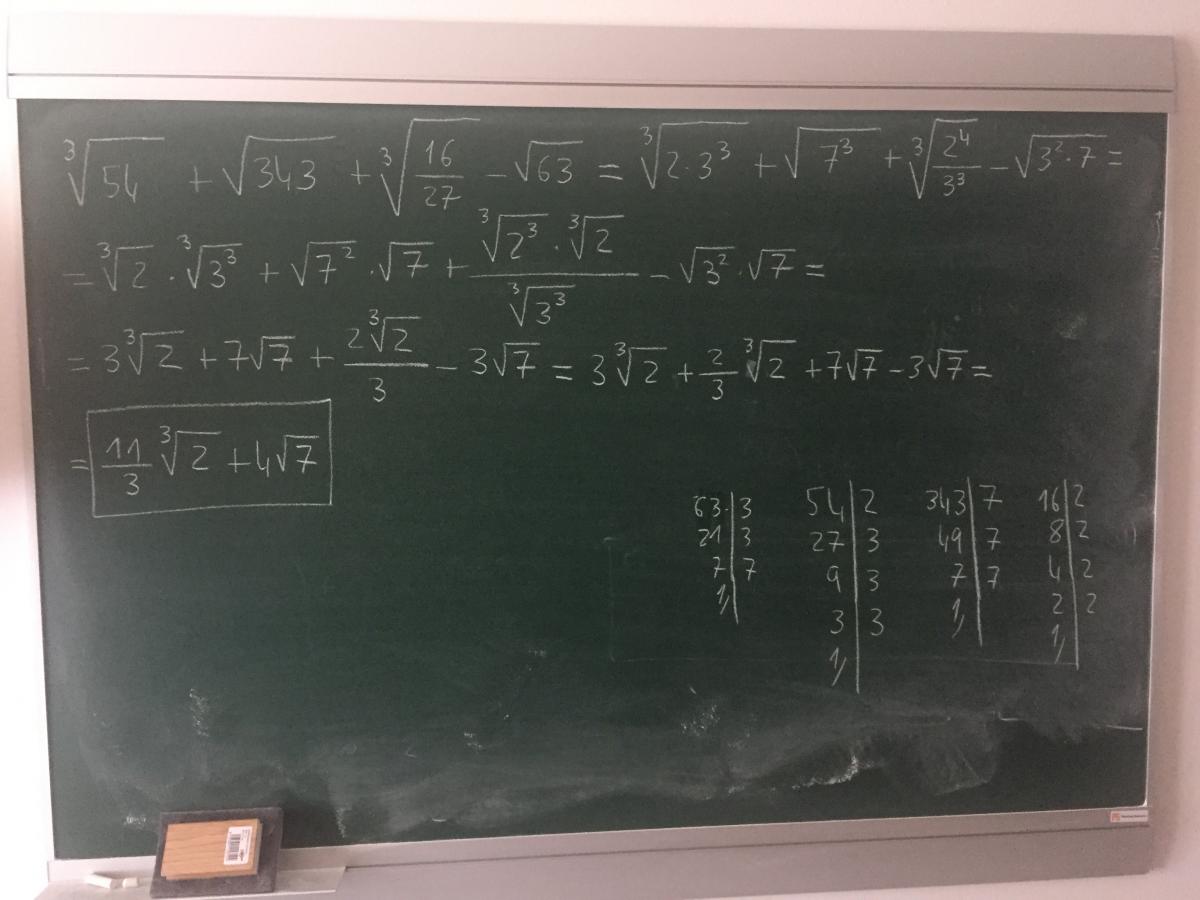 ∛54 + √343 + ∛(16/27) − √63 = ∛(2·3³) + √(7³) + ∛(2⁴/3³) − √(3²·7) =
= ∛2 · ∛(3³) + √(7²) · √7 + (∛(2³) · ∛2)/∛(3³) − √(3²) · √7 =
= 3∛2 + 7√7 + (2∛2)/3 − 3√7 = 3∛2 + 2/3 ∛2 + 7√7 − 3√7 =
= 11/3 ∛2 + 4√7
63 | 3
21 | 3
7 | 7
1
54 | 2
27 | 3
9 | 3
3 | 3
1
343 | 7
49 | 7
7 | 7
1
16 | 2
8 | 2
4 | 2
2 | 2
1